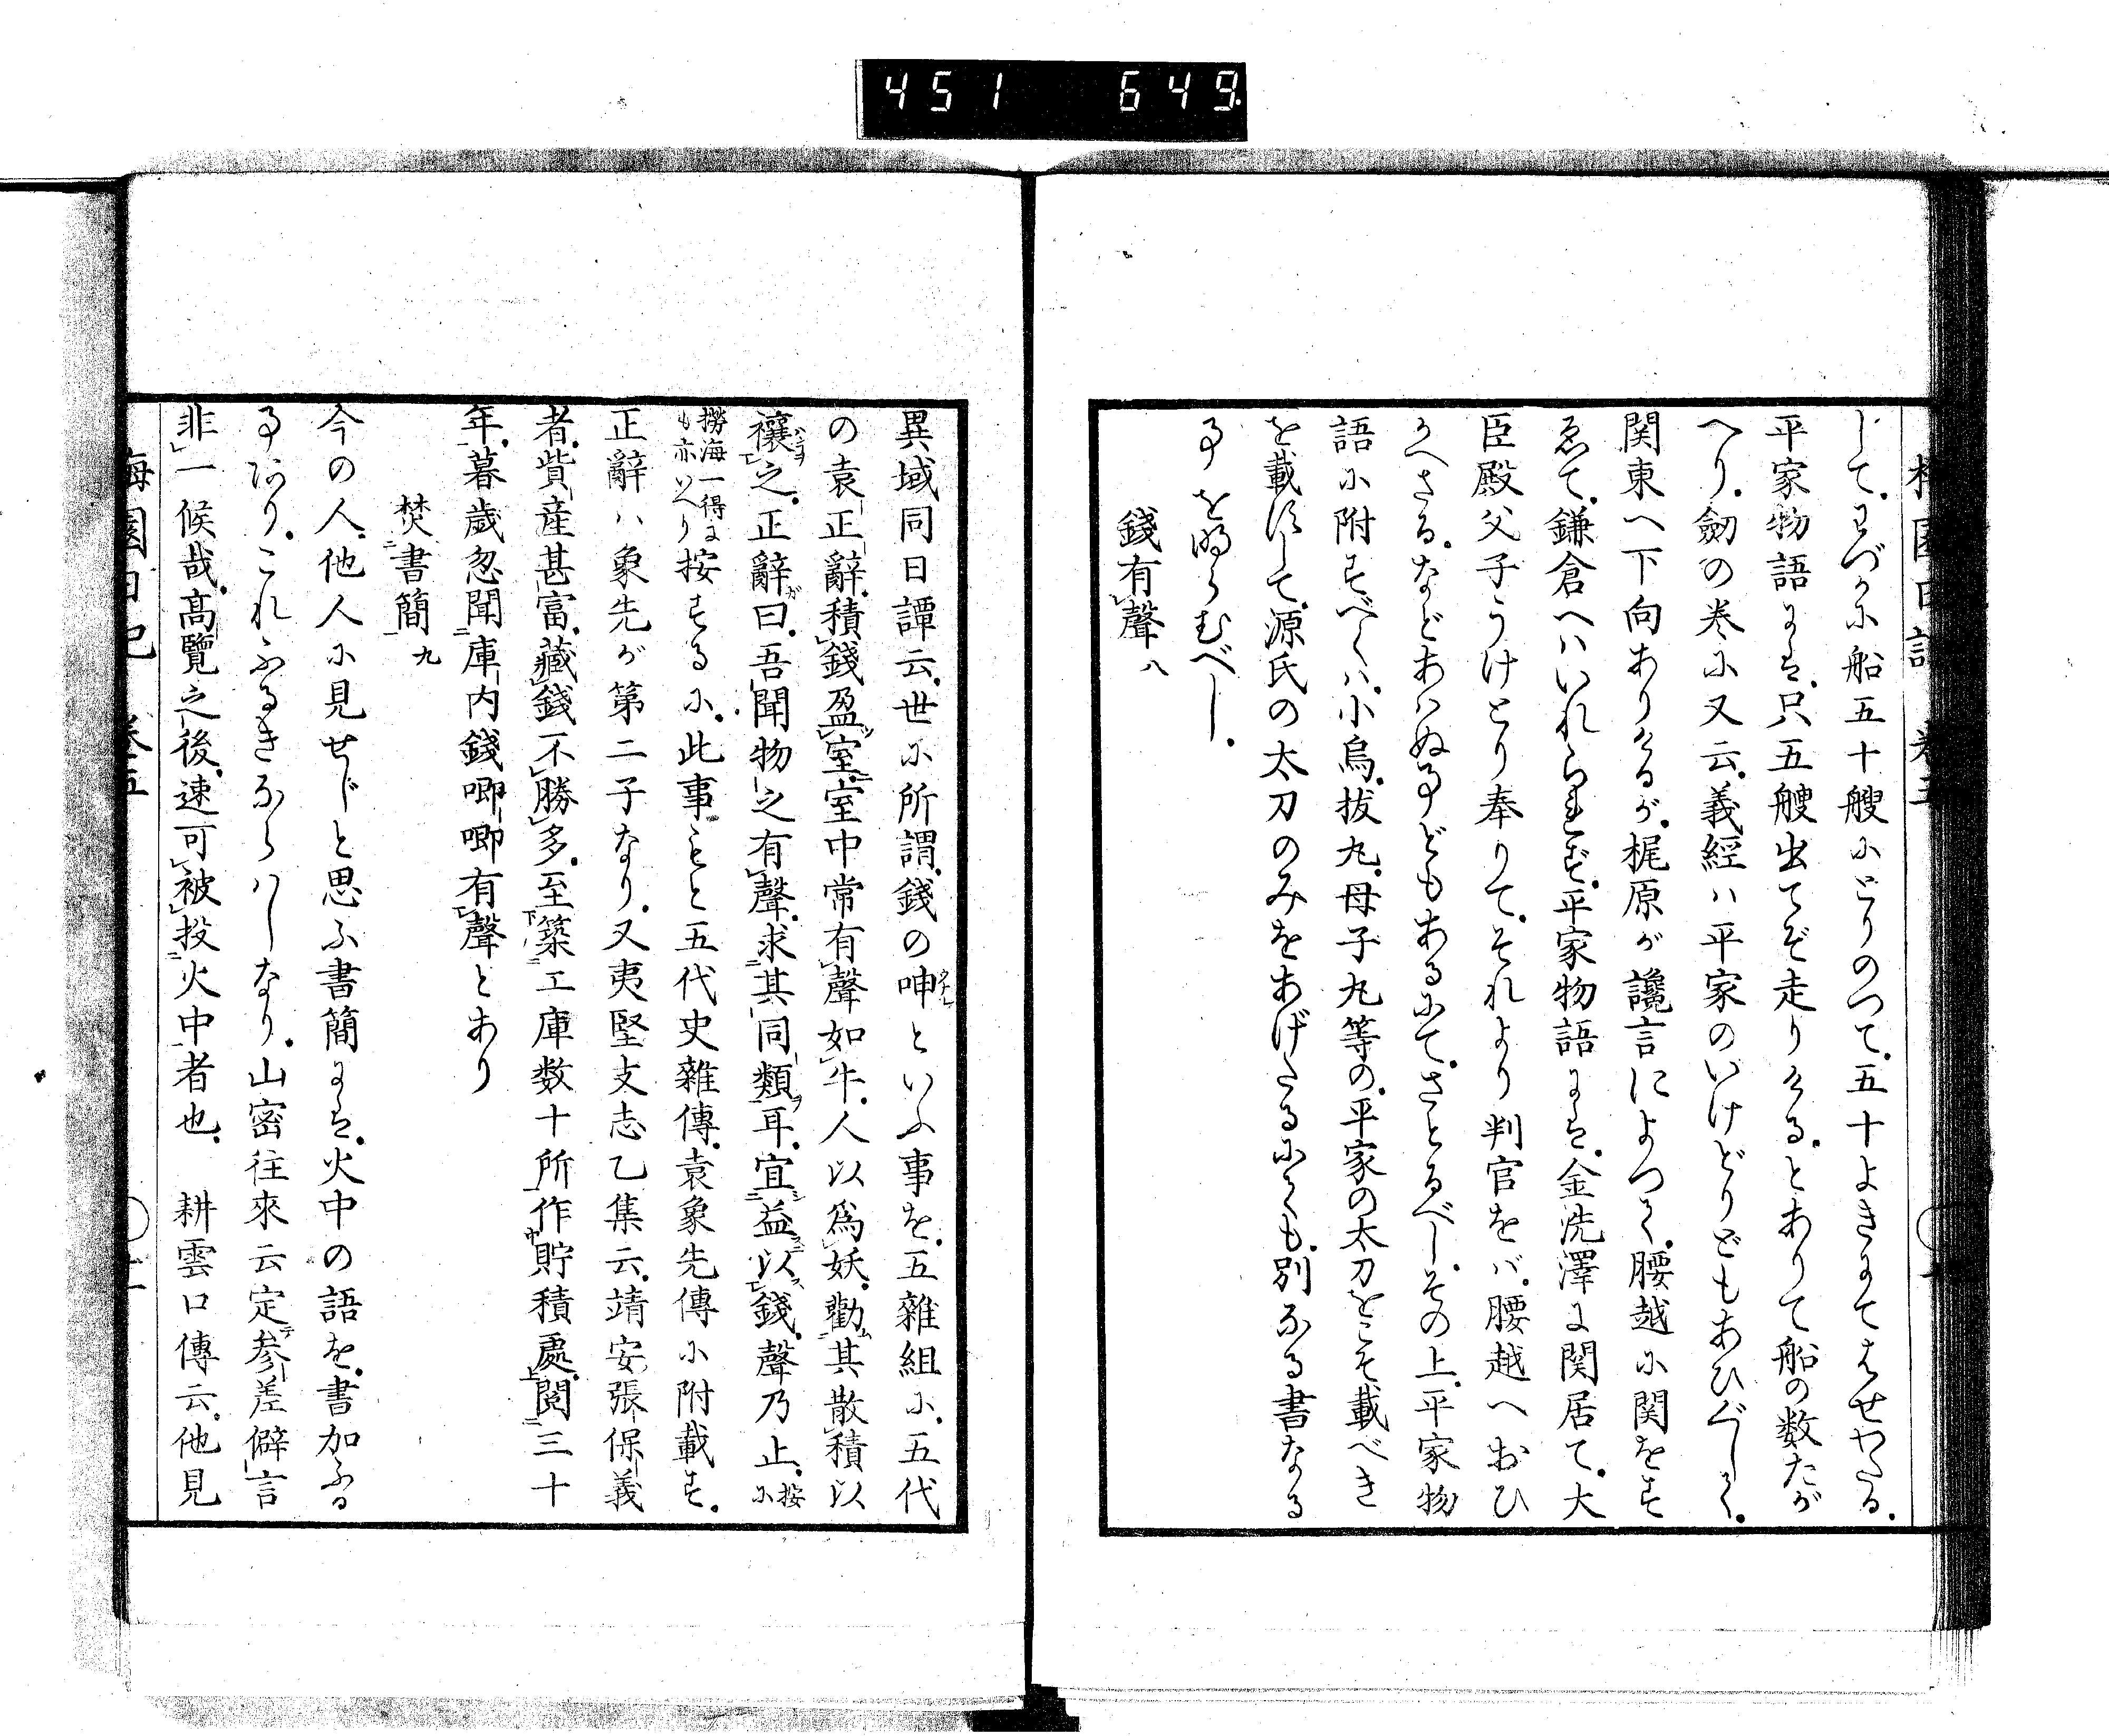 451 649
梅園日記 巻五
じて。わづかに船五十艘にとりのつて。五十よきにてはせわたる。
平家物語には。只五艘出てぞ走りける。とありて船の数たが
へり。劔の巻に又云。義經ハ平家のいけどりどもあひぐして。
関東へ下向ありけるが。梶原が讒言によつて。腰越に関をす
ゑて。鎌倉へハいれられず。平家物語には。金洗澤に関居て。大
臣殿父子うけとり奉りて。それより判官をバ。腰越へおひ
かへさる。などあハぬ事どもあるにて。さとるべし。その上。平家物
語に附すべくハ。小烏。拔丸。母子丸等の。平家の太刀をこそ載べき
を。載ずして。源氏の太刀のみをあげたるにても。別なる書なる
事を明らむべし。
錢有聲 八
異域同日譚云。世に所謂。錢の呻といふ事を。五雜組に。五代
の袁正辭。積錢盈室。室中常有聲如牛。人以爲妖。勸其散積以
禳之。正辭曰。吾聞物之有聲。求其同類耳。宜益以錢。聲乃止。按に
撈海一得にも亦いへり 按ずるに。此事もと五代史雜傳。袁象先傳に附載す。
正辭ハ象先が第二子なり。又夷堅支志乙集云。靖安張保義
者。貲産甚富。藏錢不勝多。至築エ庫数十所作貯積處。閲三十
年。暮歳忽聞庫内錢唧唧有聲とあり
焚書簡 九
今の人。他人に見せじと思ふ書簡には。火中の語を。書加ふる
事あり。これふるきならハしなり。山密往來云定参差僻言
非一候哉。高覽之後。速可被投火中者也。 耕雲口傳云。他見
梅園日記 巻五